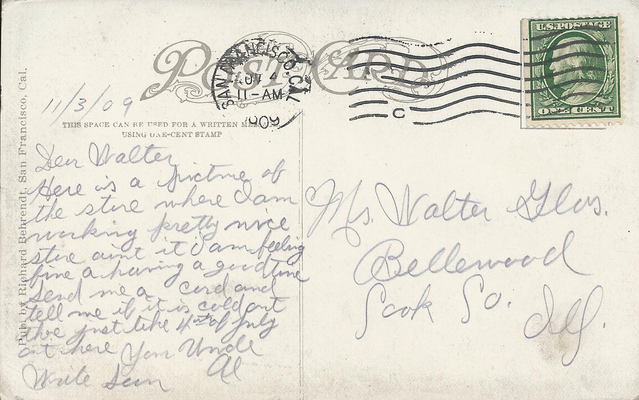 POST CARD
SAN FRANCISCO, CAL.
4
11-AM
1909
C
U.S. POSTAGE
ONE CENT
Pub. by Richard Behrendt, San Francisco, Cal.
11/3/09
THIS SPACE CAN BE USED FOR A WRITTEN
USING ONE-CENT STAMP
Dear Walter
Here is a picture of
the store where I am
working pretty nice
store aint it I am feeling
fine a having a good time
send me a card and
tell me if it is cold out
there just like 4th of July
out here Your Uncle
Al
Write Soon
Walter Glos.
Bellewood
Cook Co.
Ill.